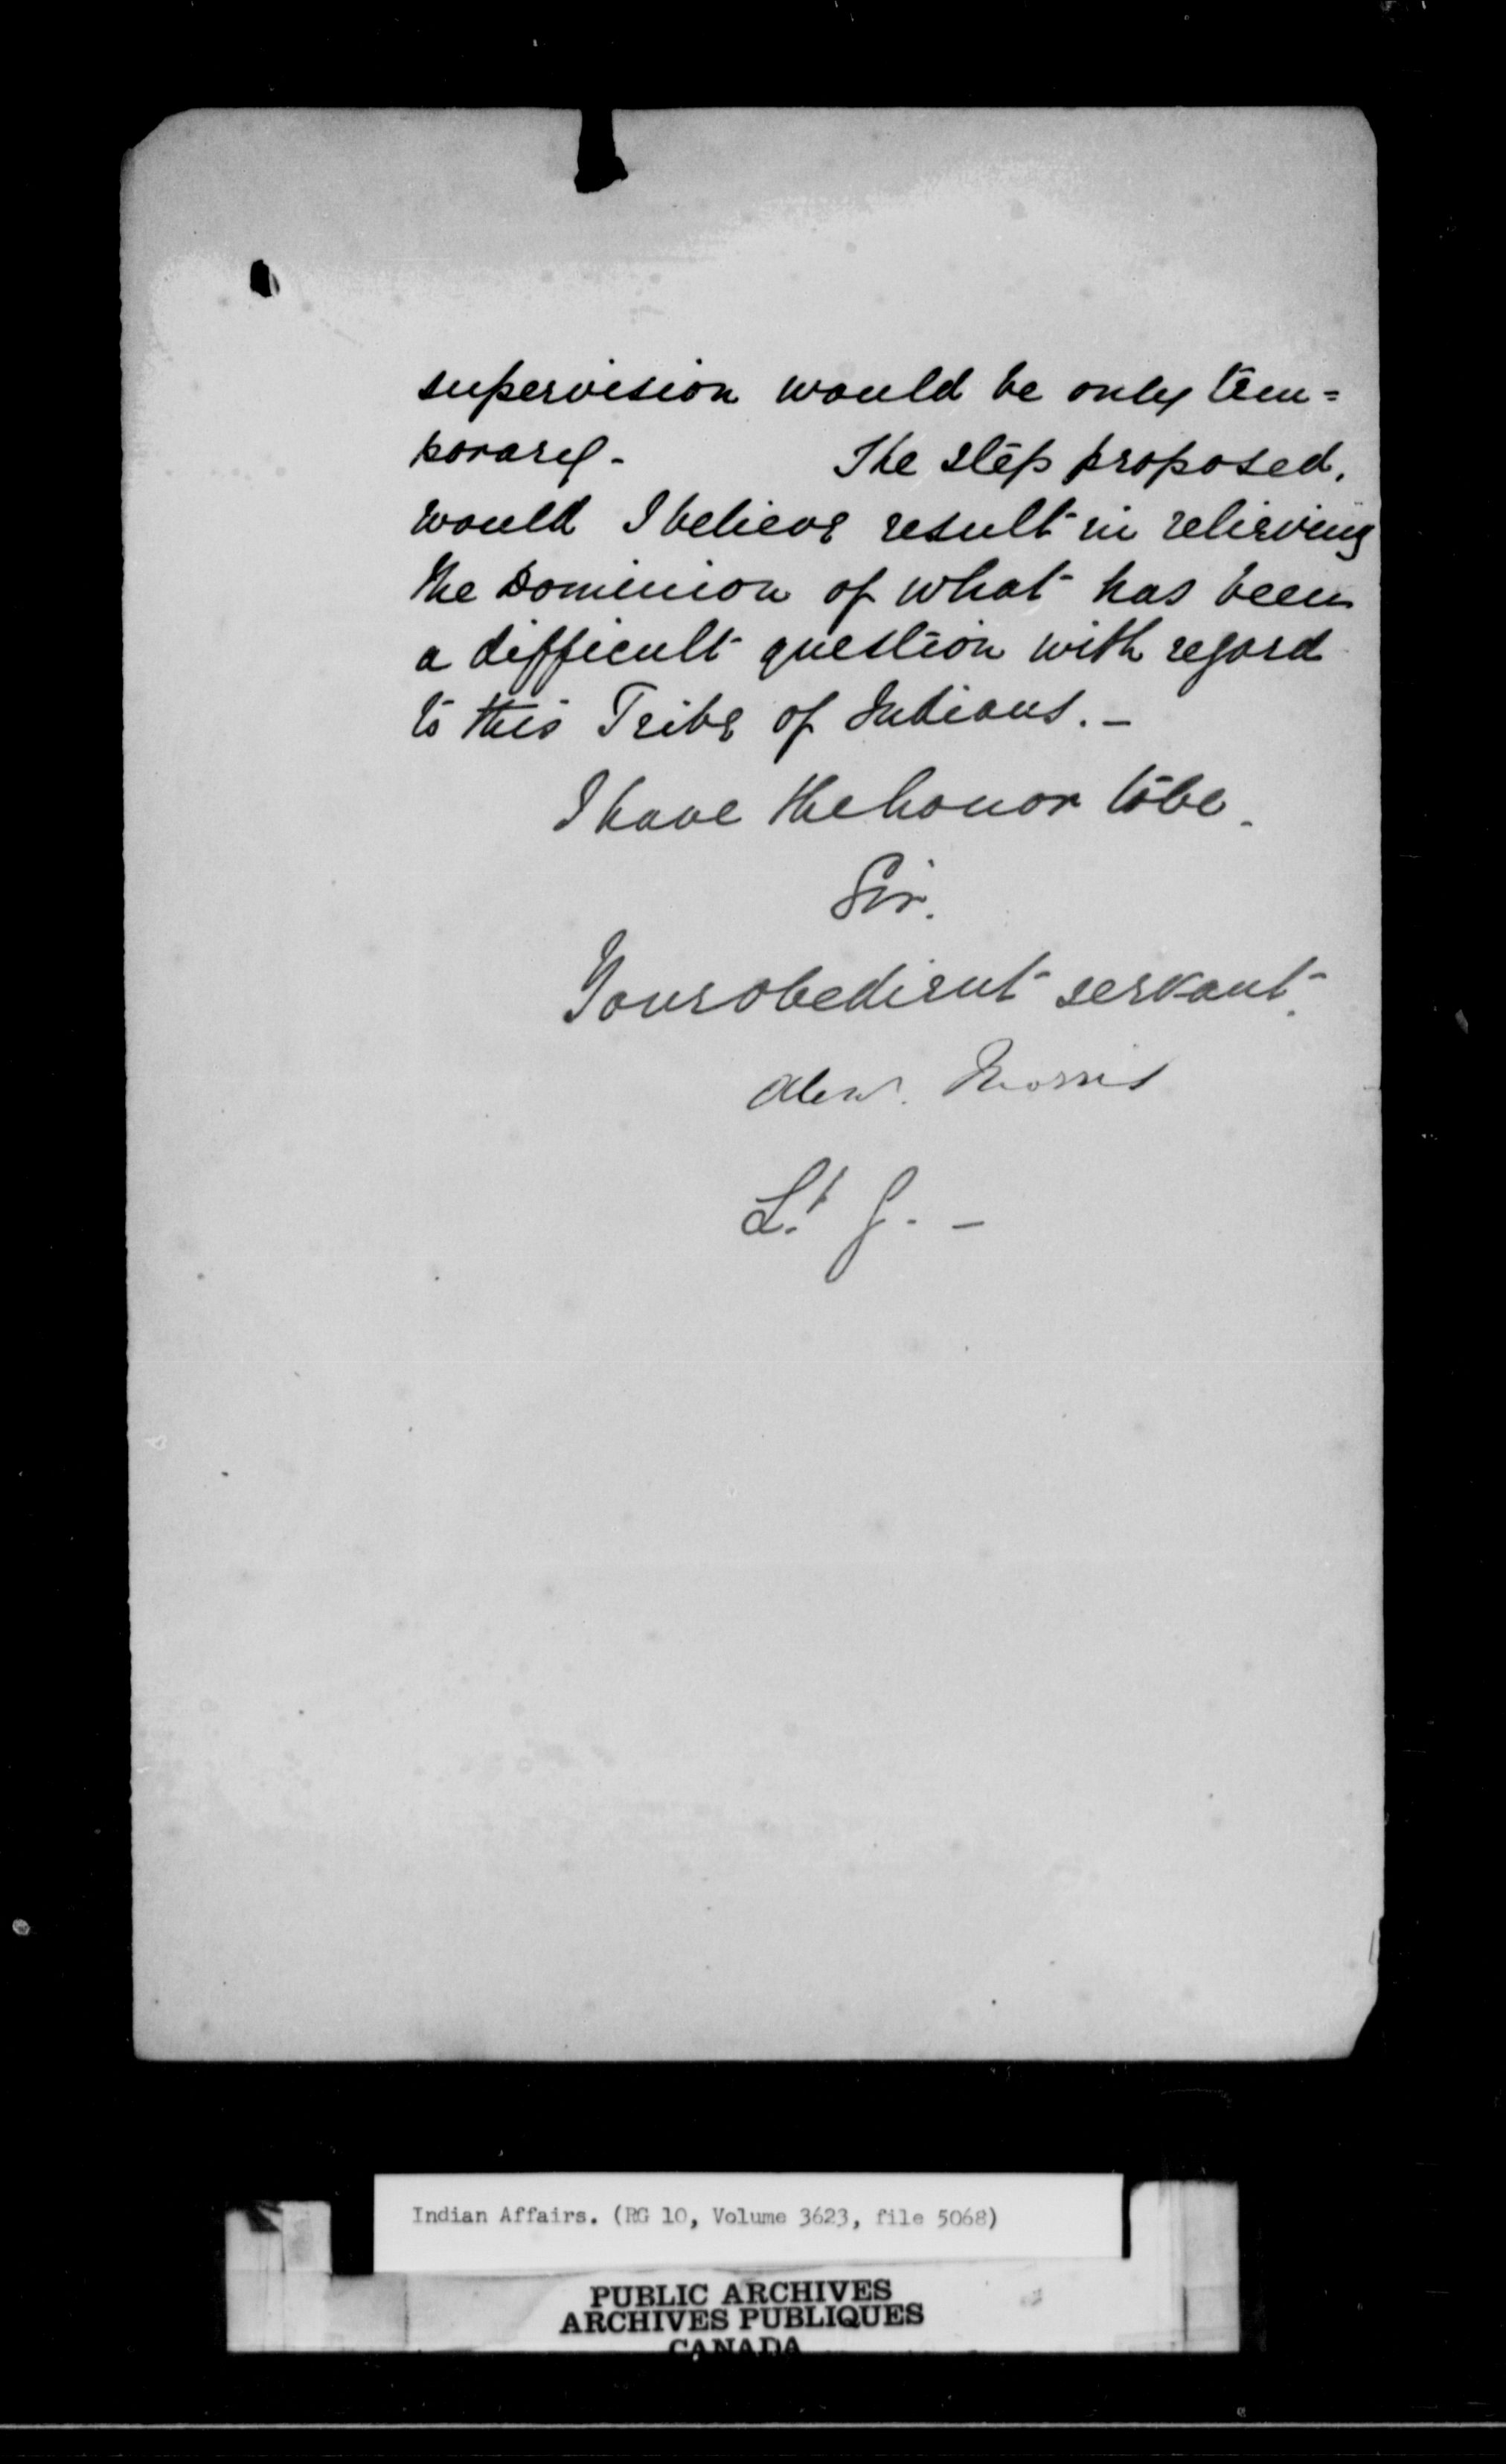 supervision would be only tem=
porary - The step proposed,
would I believe result in relieving
the Dominion of what has been
a difficult question with regard
to this Tribe of Indians. -
I have the honor to be.
Sir.
Your obedient servant.
Alexr. Morris
Lt G. -
Indian Affairs. (RG 10, Volume 3623, file 5068)
PUBLIC ARCHIVES
ARCHIVES PUBLIQUES
CANADA